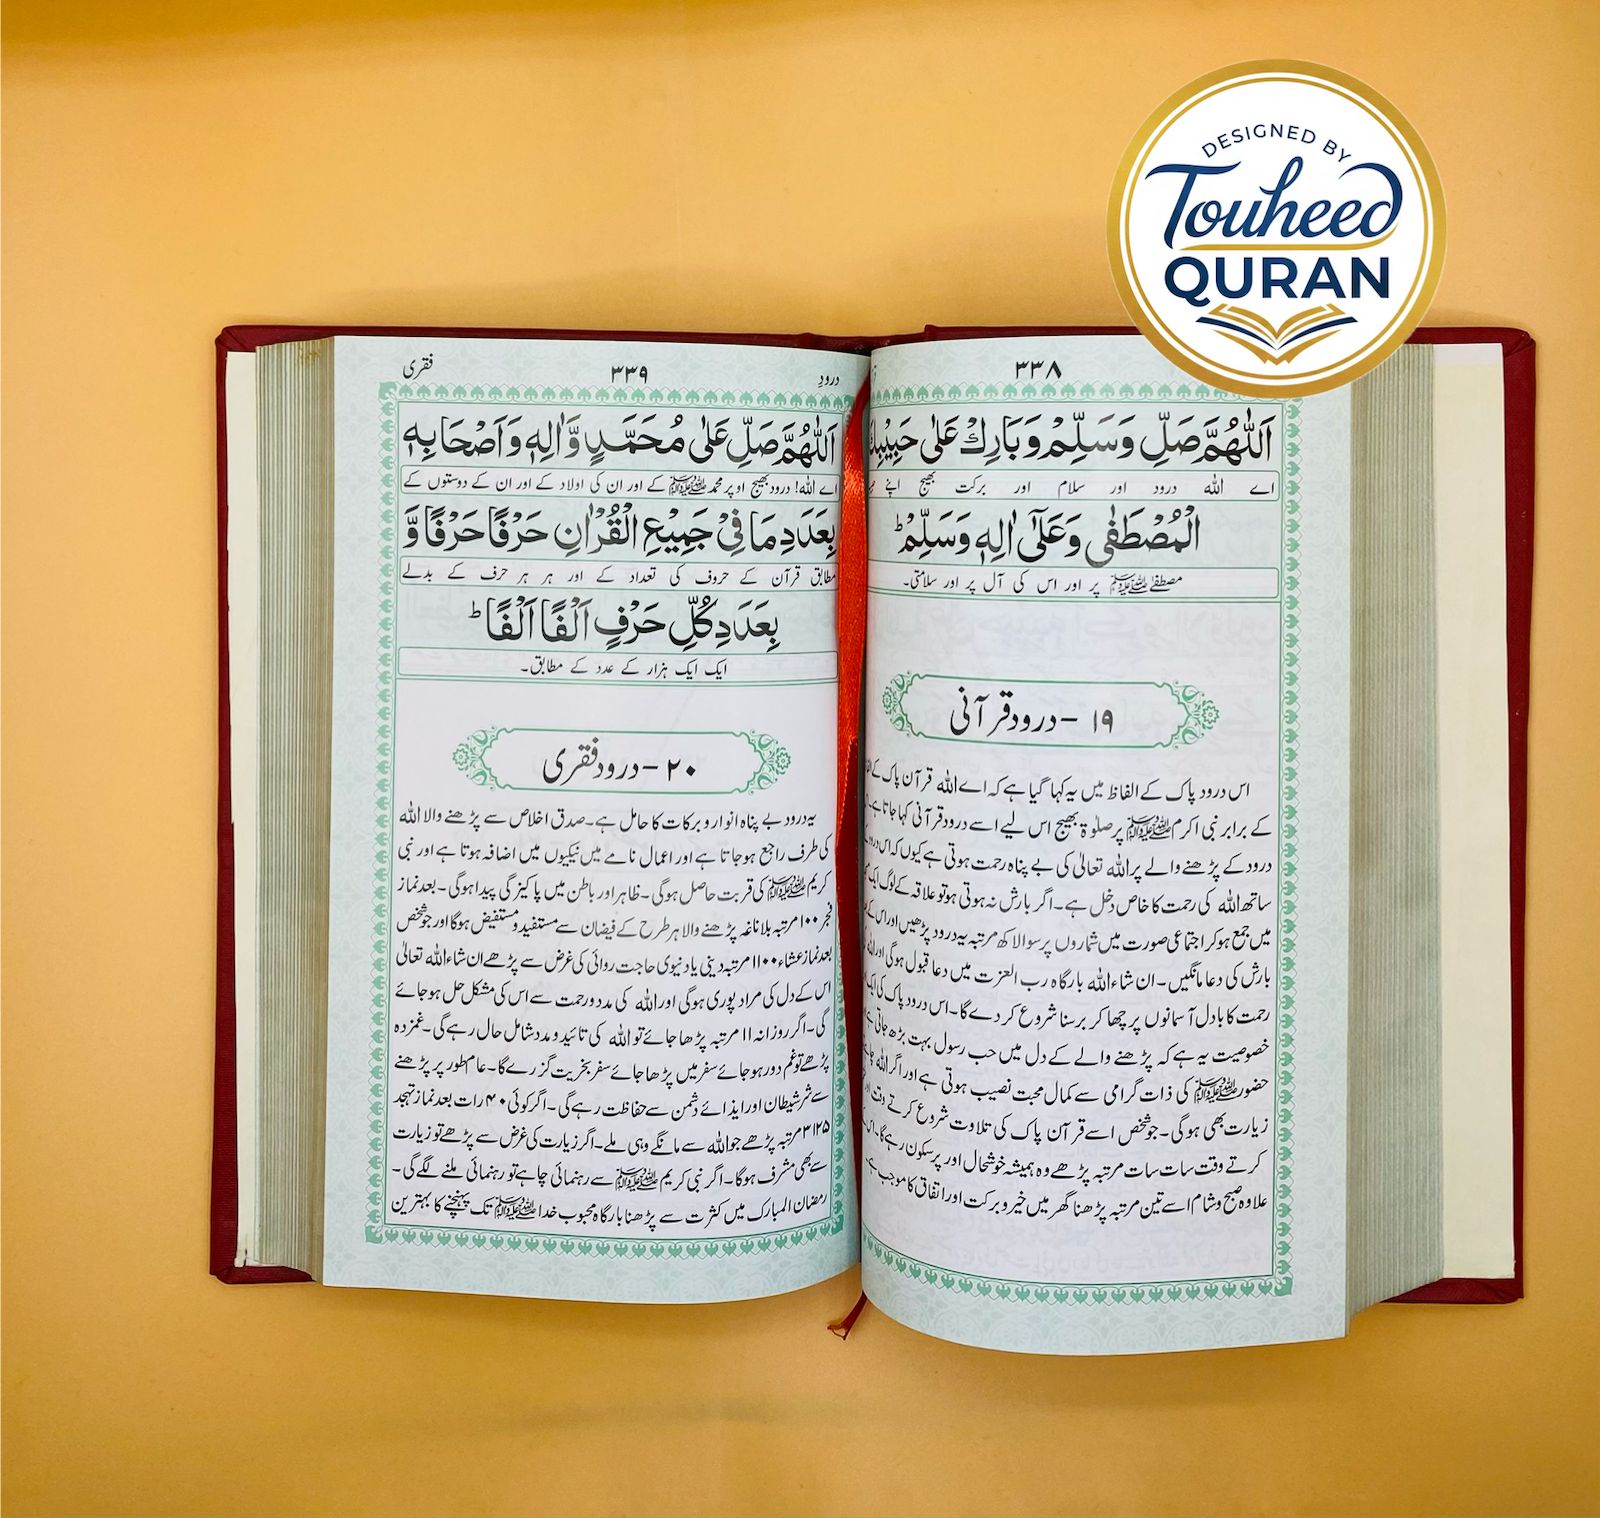 DESIGNED BY
Touheed
QURAN
٣٣٨
اَللّٰهُمَّ صَلِّ وَسَلِّمْ وَبَارِكْ عَلٰى حَبِيْبِكَ
اے اللہ درود اور سلام اور برکت بھیج اپنے
الْمُصْطَفٰى وَعَلٰٓى اٰلِهٖ وَسَلِّمْ ؕ
مصطفےٰ ﷺ پر اور اس کی آل پر اور سلامتی۔
١٩ - درود قرآنی
اس درود پاک کے الفاظ میں یہ کہا گیا ہے کہ اے اللہ قرآن پاک کے
کے برابر نبی اکرم ﷺ پر صلوٰۃ بھیج اس لیے اسے درود قرآنی کہا جاتا ہے۔
درود کے پڑھنے والے پر اللہ تعالیٰ کی بے پناہ رحمت ہوتی ہے کیوں کہ اس درود
ساتھ اللہ کی رحمت کا خاص دخل ہے۔ اگر بارش نہ ہوتی ہو تو علاقہ کے لوگ ایک
میں جمع ہو کر اجتماعی صورت میں شماروں پر سوا لاکھ مرتبہ یہ درود پڑھیں اور اس کے
بارش کی دعا مانگیں۔ ان شاء اللہ بارگاہ رب العزت میں دعا قبول ہوگی اور اللہ
رحمت کا بادل آسمانوں پر چھا کر برسنا شروع کر دے گا۔ اس درود پاک کی ایک
خصوصیت یہ ہے کہ پڑھنے والے کے دل میں حب رسول بہت بڑھ جاتی ہے
حضور ﷺ کی ذات گرامی سے کمال محبت نصیب ہوتی ہے اور اگر اللہ چاہے
زیارت بھی ہوگی۔ جو شخص اسے قرآن پاک کی تلاوت شروع کرتے وقت اور
کرتے وقت سات سات مرتبہ پڑھے وہ ہمیشہ خوشحال اور پرسکون رہے گا۔ اس کے
علاوہ صبح و شام اسے تین مرتبہ پڑھنا گھر میں خیر و برکت اور اتفاق کا موجب ہے۔
درود
٣٣٩
فقری
اَللّٰهُمَّ صَلِّ عَلٰى مُحَمَّدٍ وَّاٰلِهٖ وَاَصْحَابِهٖ
اے اللہ! درود بھیج اوپر محمد ﷺ کے اور ان کی اولاد کے اور ان کے دوستوں کے
بِعَدَدِ مَا فِىْ جَمِيْعِ الْقُرْاٰنِ حَرْفًا حَرْفًا وَّ
مطابق قرآن کے حروف کی تعداد کے اور ہر ہر حرف کے بدلے
بِعَدَدِ كُلِّ حَرْفٍ اَلْفًا اَلْفًا ؕ
ایک ایک ہزار کے عدد کے مطابق۔
٢٠ - درود فقری
یہ درود بے پناہ انوار و برکات کا حامل ہے۔ صدق اخلاص سے پڑھنے والا اللہ
کی طرف راجع ہو جاتا ہے اور اعمال نامے میں نیکیوں میں اضافہ ہوتا ہے اور نبی
کریم ﷺ کی قربت حاصل ہوگی۔ ظاہر اور باطن میں پاکیزگی پیدا ہوگی۔ بعد نماز
فجر ۱۰۰ مرتبہ بلا ناغہ پڑھنے والا ہر طرح کے فیضان سے مستفید و مستفیض ہوگا اور جو شخص
بعد نماز عشاء ۱۱۰۰ مرتبہ دینی یا دنیوی حاجت روائی کی غرض سے پڑھے ان شاء اللہ تعالیٰ
اس کے دل کی مراد پوری ہوگی اور اللہ کی مدد و رحمت سے اس کی مشکل حل ہو جائے
گی۔ اگر روزانہ ۱۱ مرتبہ پڑھا جائے تو اللہ کی تائید و مدد شامل حال رہے گی۔ غمزدہ
پڑھے تو غم دور ہو جائے سفر میں پڑھا جائے سفر بخیریت گزرے گا۔ عام طور پر پڑھنے
سے شر شیطان اور ایذائے دشمن سے حفاظت رہے گی۔ اگر کوئی ۴۰ رات بعد نماز تہجد
۳۱۲۵ مرتبہ پڑھے جو اللہ سے مانگے وہی ملے۔ اگر زیارت کی غرض سے پڑھے تو زیارت
سے بھی مشرف ہوگا۔ اگر نبی کریم ﷺ سے رہنمائی چاہے تو رہنمائی ملنے لگے گی۔
رمضان المبارک میں کثرت سے پڑھنا بارگاہ محبوب خدا ﷺ تک پہنچنے کا بہترین